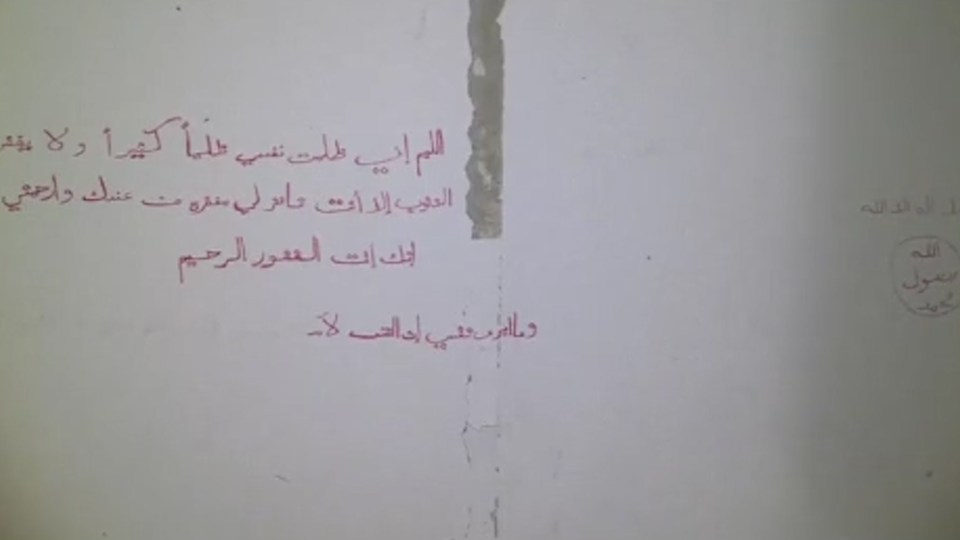 اللهم إني ظلمت نفسي ظلماً كثيراً ولا يغفر
الذنوب إلا أنت فاغفر لي مغفرة من عندك وارحمني
إنك أنت الغفور الرحيم
وما نفسي إن
إله إلا الله
الله
رسول
محمد